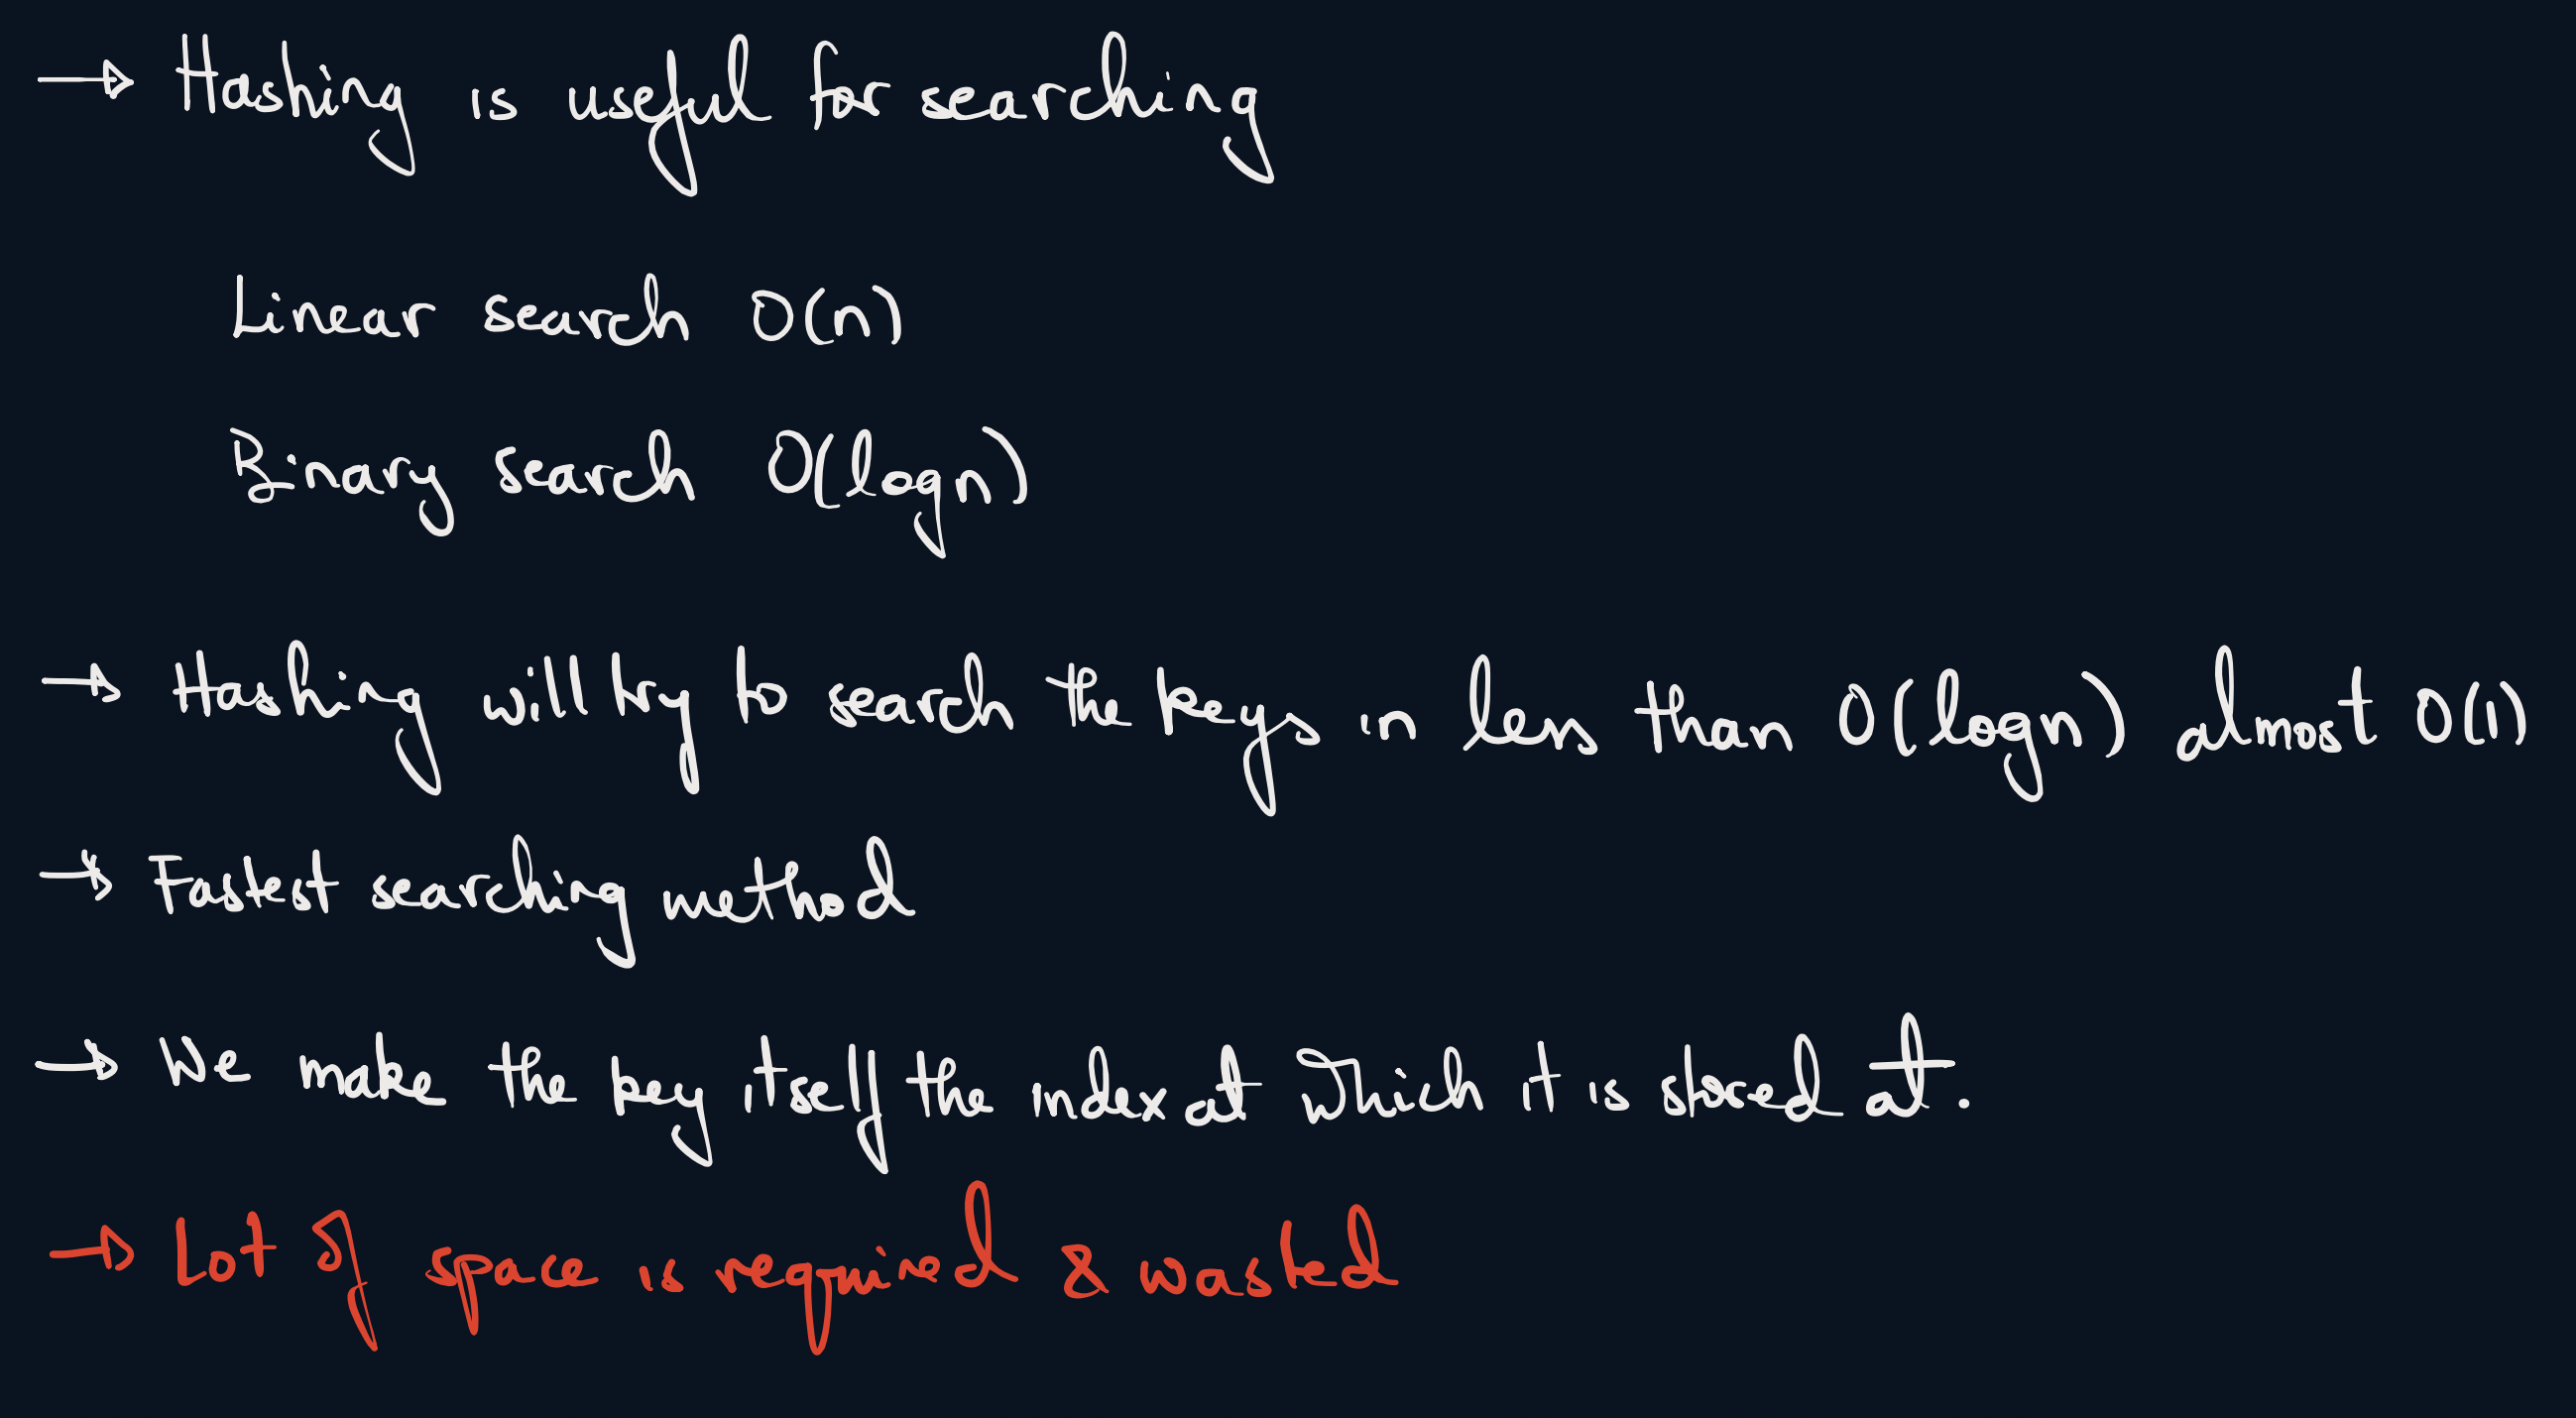 → Hashing is useful for searching
Linear search O(n)
Binary search O(logn)
→ Hashing will try to search the keys in less than O(logn) almost O(1)
→ Fastest searching method
→ We make the key itself the index at which it is stored at.
→ Lot of space is required & wasted